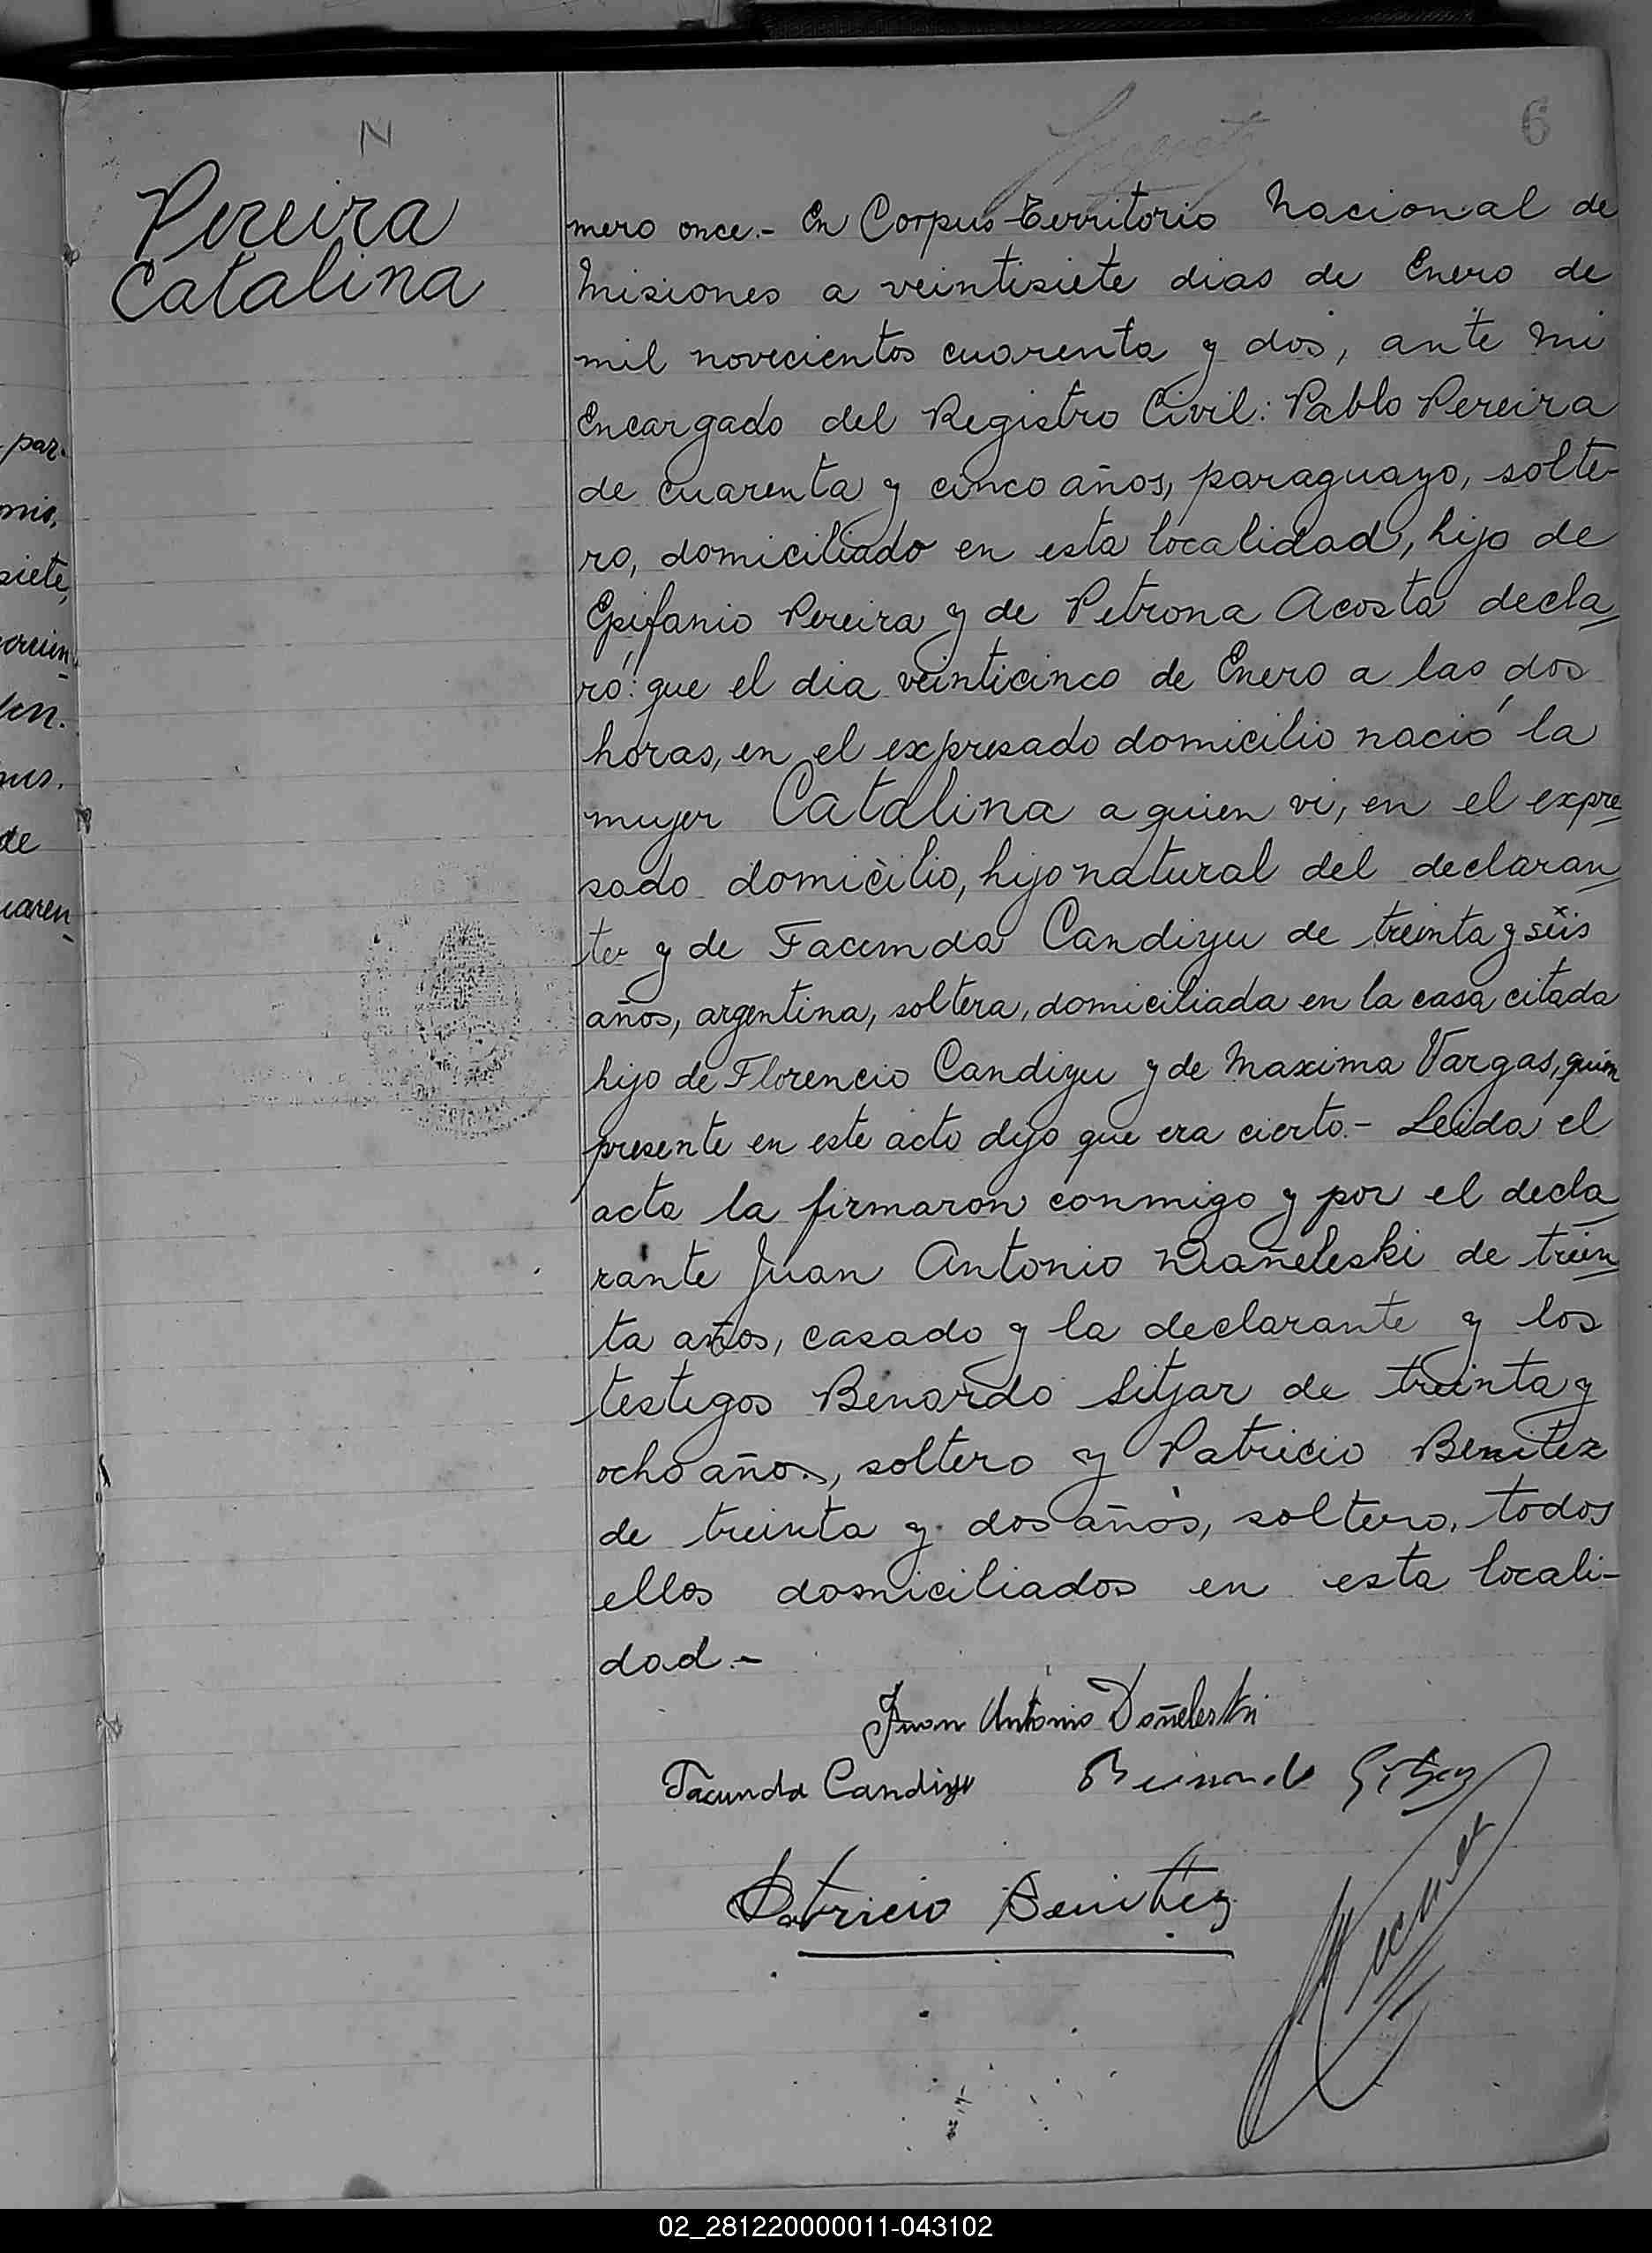 N
6
Pereira
Catalina
mero once.- En Corpus-Territorio Nacional de
Misiones a veintisiete dias de Enero de
mil novecientos cuarenta y dos, ante mi
Encargado del Registro Civil: Pablo Pereira
de cuarenta y cinco años, paraguayo, solte-
ro, domiciliado en esta localidad, hijo de
Epifanio Pereira y de Petrona Acosta decla
ró: que el dia veinticinco de Enero a las dos
horas, en el expresado domicilio nació la
mujer Catalina a quien vi, en el expre
sado domicilio, hijo natural del declaran
te y de Facunda Candiyu de treinta y seis
años, argentina, soltera, domiciliada en la casa citada
hijo de Florencio Candiyu y de Maxima Vargas, quien
presente en este acto dijo que era cierto.- Leida el
acta la firmaron conmigo y por el decla
rante Juan Antonio Dañeleski de trein
ta años, casado y la declarante y los
testigos Benardo Sitjar de treinta y
ocho años, soltero y Patricio Benitez
de treinta y dos años, soltero, todos
ellos domiciliados en esta locali-
dad.-
Juan Antonio Dañeleski
Facunda Candiyu
Patricio Benitez
par.
mio,
siete,
de
uaren
02_281220000011-043102